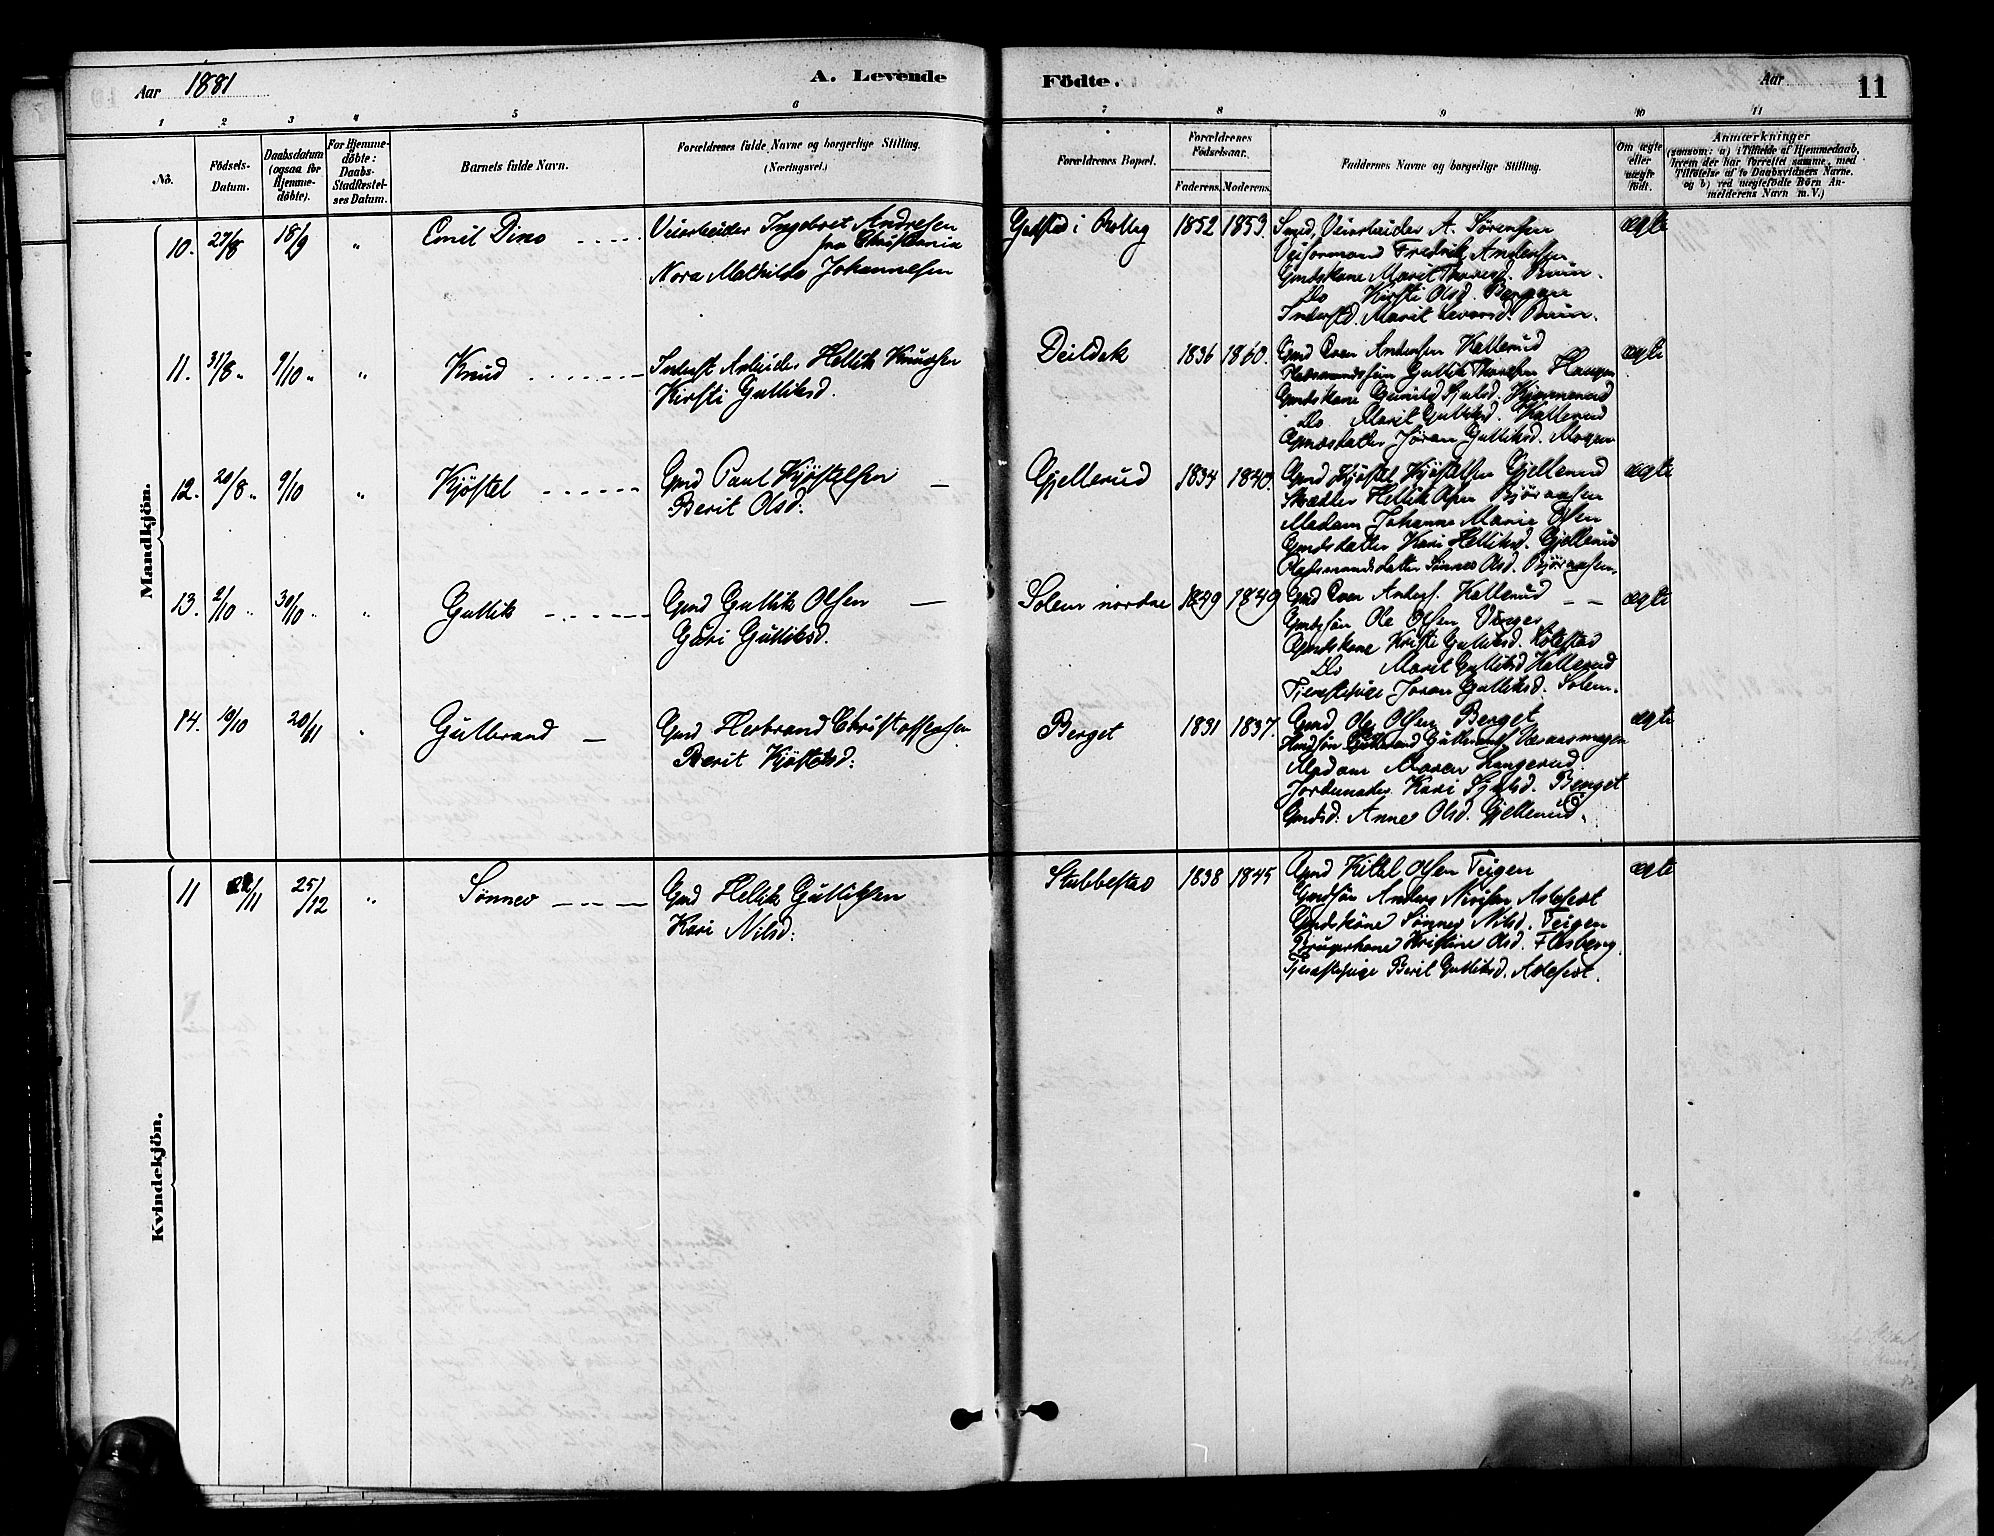 Aar 1881
A. Levende Födte.
Aar
11
1 2 3 4 5 6 7 8 9 10 11
No.
Födsels-Datum.
Daabsdatum (ogsaa for Hjemme-döbte).
For Hjemme-döbte: Daabs-Stadfæstel-ses Datum.
Barnets fulde Navn.
Forældrenes fulde Navne og borgerlige Stilling. (Næringsvei.)
Forældrenes Bopæl.
Forældrenes Födselsaar.
Faderens. Moderens.
Faddernes Navne og borgerlige Stilling.
Om ægte eller uægte födt.
Anmærkninger
(saasom: a) i Tilfælde af Hjemmedaab, hvem der har forrettet samme, med Tilföielse af to Daabsvidners Navne, og b) ved uægtefödte Börn An-melderens Navn m. V.)
Mandkjön.
10. 27/8 18/9 " Emil Dino
Veiarbeider Ingebret Andresen
fra Christiania
Nora Mathilde Johannesen
i Rolleg 1852 1853.
Smed, Veiarbeider A. Sørensen
Veiformand Fredrik Andersen
Gmdskone Marit Bruun.
Do Kirsti Olsd. Bergan
Marit
ægte
11. 31/8 " 9/10 " " Knud
Inderst Arbeider Hellik Knudsen
Kirsti Gulliksd.
Deildek 1836 1860.
Gmd Even Andersen Kallerud
Gullik Thorsen Haugen
Gmdskone Gunild
Do Marit Gulliksd. Kallerud
Gmdsdatter Jøran Gulliksd. Mogen
ægte
12. 20/8 " 9/10 " Kjøstel
Gmd Paul Kjøstelsen
Berit Olsd.
Gjellerud 1834 1840.
Gmd Kjøstel Kjøstelsen Gjellerud
Skrædder Hellik Bjøraasen
Madam Johanne Marie Olsen
Gmdsdatter Kari Helliksd. Gjellerud
Plasmandsdatter Sønnev Olsd. Bjøraasen.
ægte
13. 2/10 " 30/10 " " Gullik
Gmd Gullik Olsen
Guri Gulliksd.
Solem nordre 1849 1849
Gmd Even Anders. Kallerud
Gmdsøn Ole Olsen
Gmdskone Kristi Gulliksd.
Do Marit Gulliksd Kallerud
Tjenestepige Joran Gulliksd. Solem.
ægte
14. 19/10 20/11 " Gulbrand
Gmd Herbrand Christoffersen
Berit Kjøstelsd:
Berget 1831 1837.
Gmd Ole Olsen Berget
Gulbrand
Madam Maren Langerud.
Jordemoder Kari Berget
Gmdsd. Anne Olsd. Gjellerud.
ægte
Kvindekjön.
11 /11 25/12 " Sønnev
Gmd Hellik Gulliksen
Kari Nilsd:
Stubbestad 1838 1845
Gmd Kittel Olsen Teigen
Gmdsøn Anders Aslefet
Gmdskone Sønnev Nilsd. Teigen
Brugerkone Kristine Olsd. Flesberg
Tjenestepige Berit Gulliksd. Aslefet.
ægte